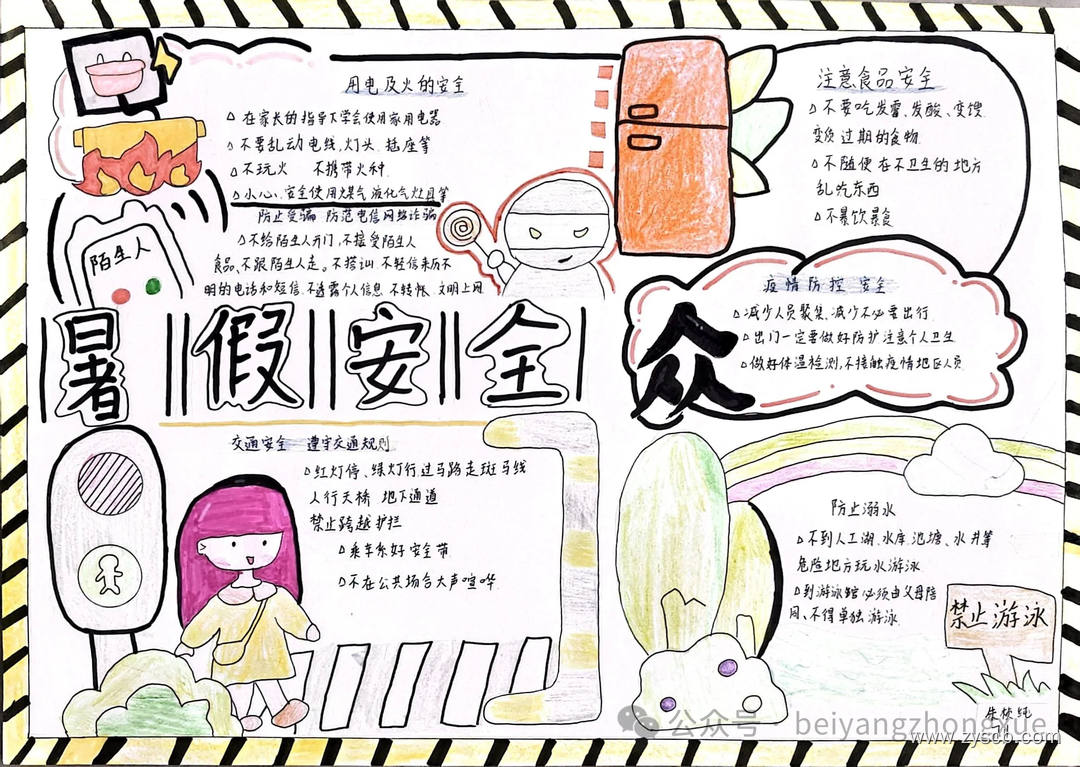 用电及火的安全
△在家长的指导下学会使用家用电器
△不要乱动电线,灯头、插座等
△不玩火 不携带火种
△小心、安全使用煤气 液化气灶具等
防止受骗 防范电信网络诈骗
△不给陌生人开门,不接受陌生人
食品、不跟陌生人走。不搭讪 不轻信来历不
明的电话和短信.不透露个人信息 不转帐 文明上网
陌生人
注意食品安全
△不要吃发霉、发酸、变馊
变质过期的食物
△不随便在不卫生的地方
乱吃东西
△不暴饮暴食
疫情防控 安全
△减少人员聚集、减少不必要出行
△出门一定要做好防护注意个人卫生
△做好体温检测,不接触疫情地区人员
暑假安全
众
交通安全 遵守交通规则
△红灯停、绿灯行过马路走斑马线
人行天桥 地下通道
禁止跨越护拦
△乘车系好安全带
△不在公共场合大声喧哗
防止溺水
△不到人工湖、水库 池塘、水井等
危险地方玩水游泳
△到游泳馆必须由父母陪
同、不得单独游泳
禁止游泳
公众号 beiyangzhongxue
www.zyscb.com